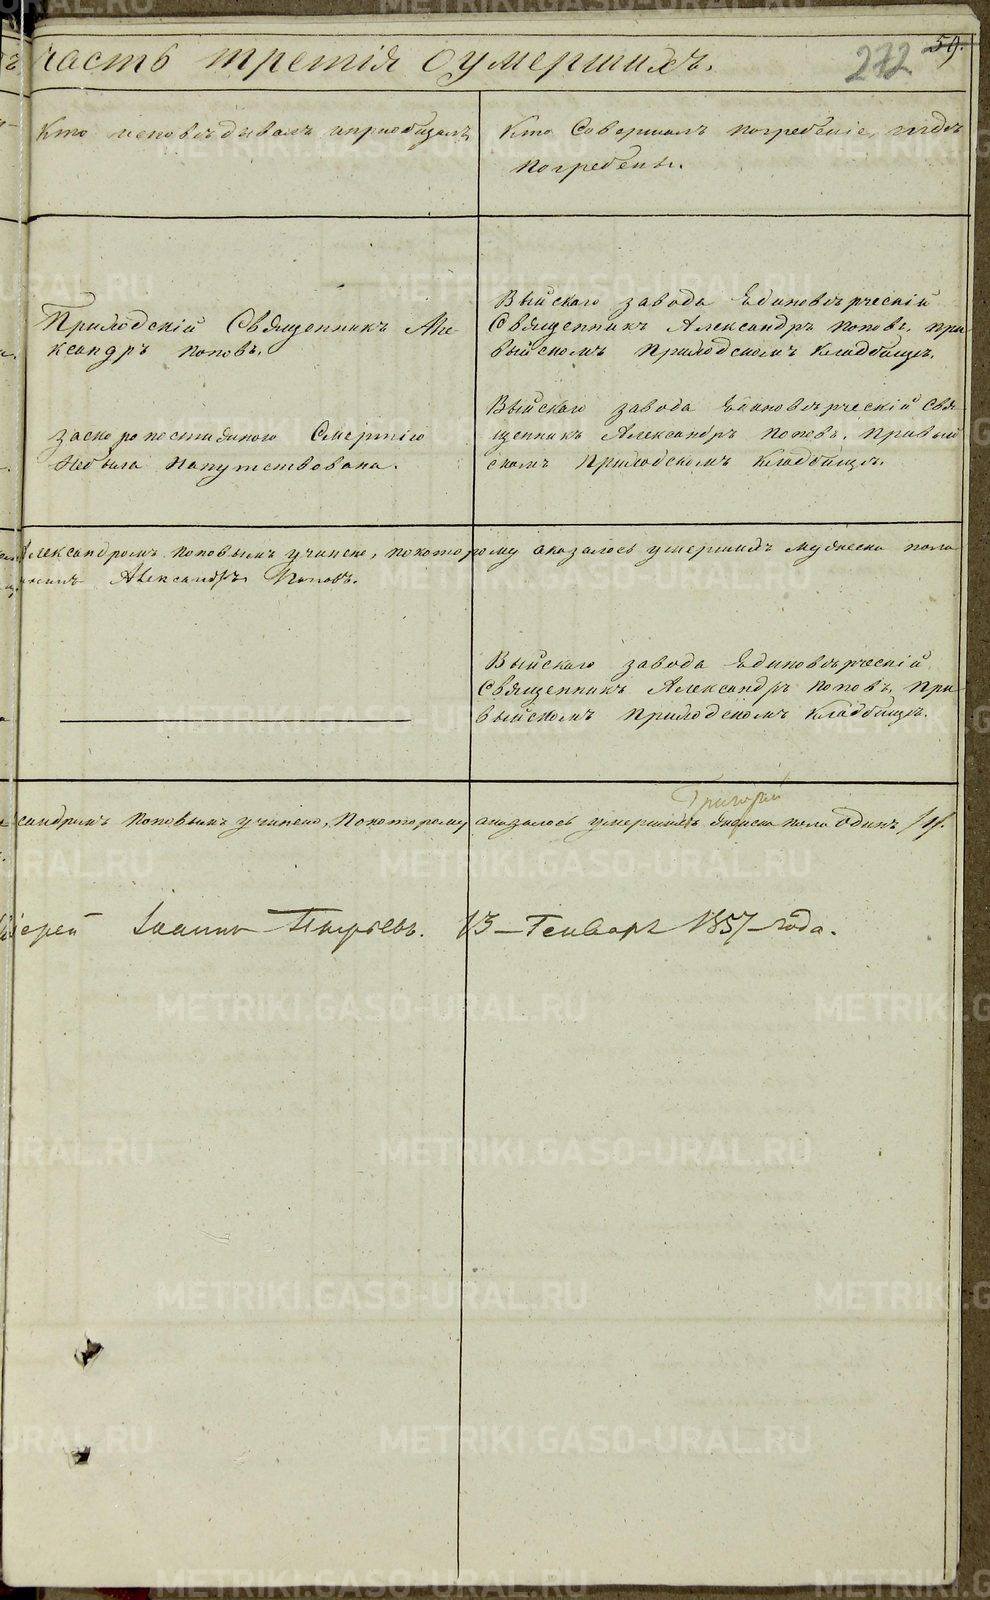 часть третія о умершихъ.
272 59.
Кто исповѣдывалъ и пріобщалъ
Кто совершалъ погребеніе, и гдѣ
погребены.
Приходскій Священникъ Але
ксандръ Поповъ.
Выйскаго завода Единовѣрческій
Священникъ Александръ Поповъ, при
выйскомъ Приходскомъ Кладбищѣ.
за скоропостижною Смертію
Небыла Напутствована.
Выйскаго завода Единовѣрческій Свя
щенникъ Александръ Поповъ, при вый
скомъ Приходскомъ Кладбищѣ.
Александромъ Поповымъ учинено, по которому оказалось умершихъ мужеска пола
Александръ Поповъ.
Выйскаго завода Единовѣрческій
Священникъ Александръ Поповъ, при
выйскомъ Приходскомъ Кладбищѣ.
Григорій
сандромъ Поповымъ учинено, По которому оказалось умершихъ женска пола Одинъ /1/.
Іерей Іоаннъ 13 Генваря 1857 года.
METRIKI.GASO-URAL.RU